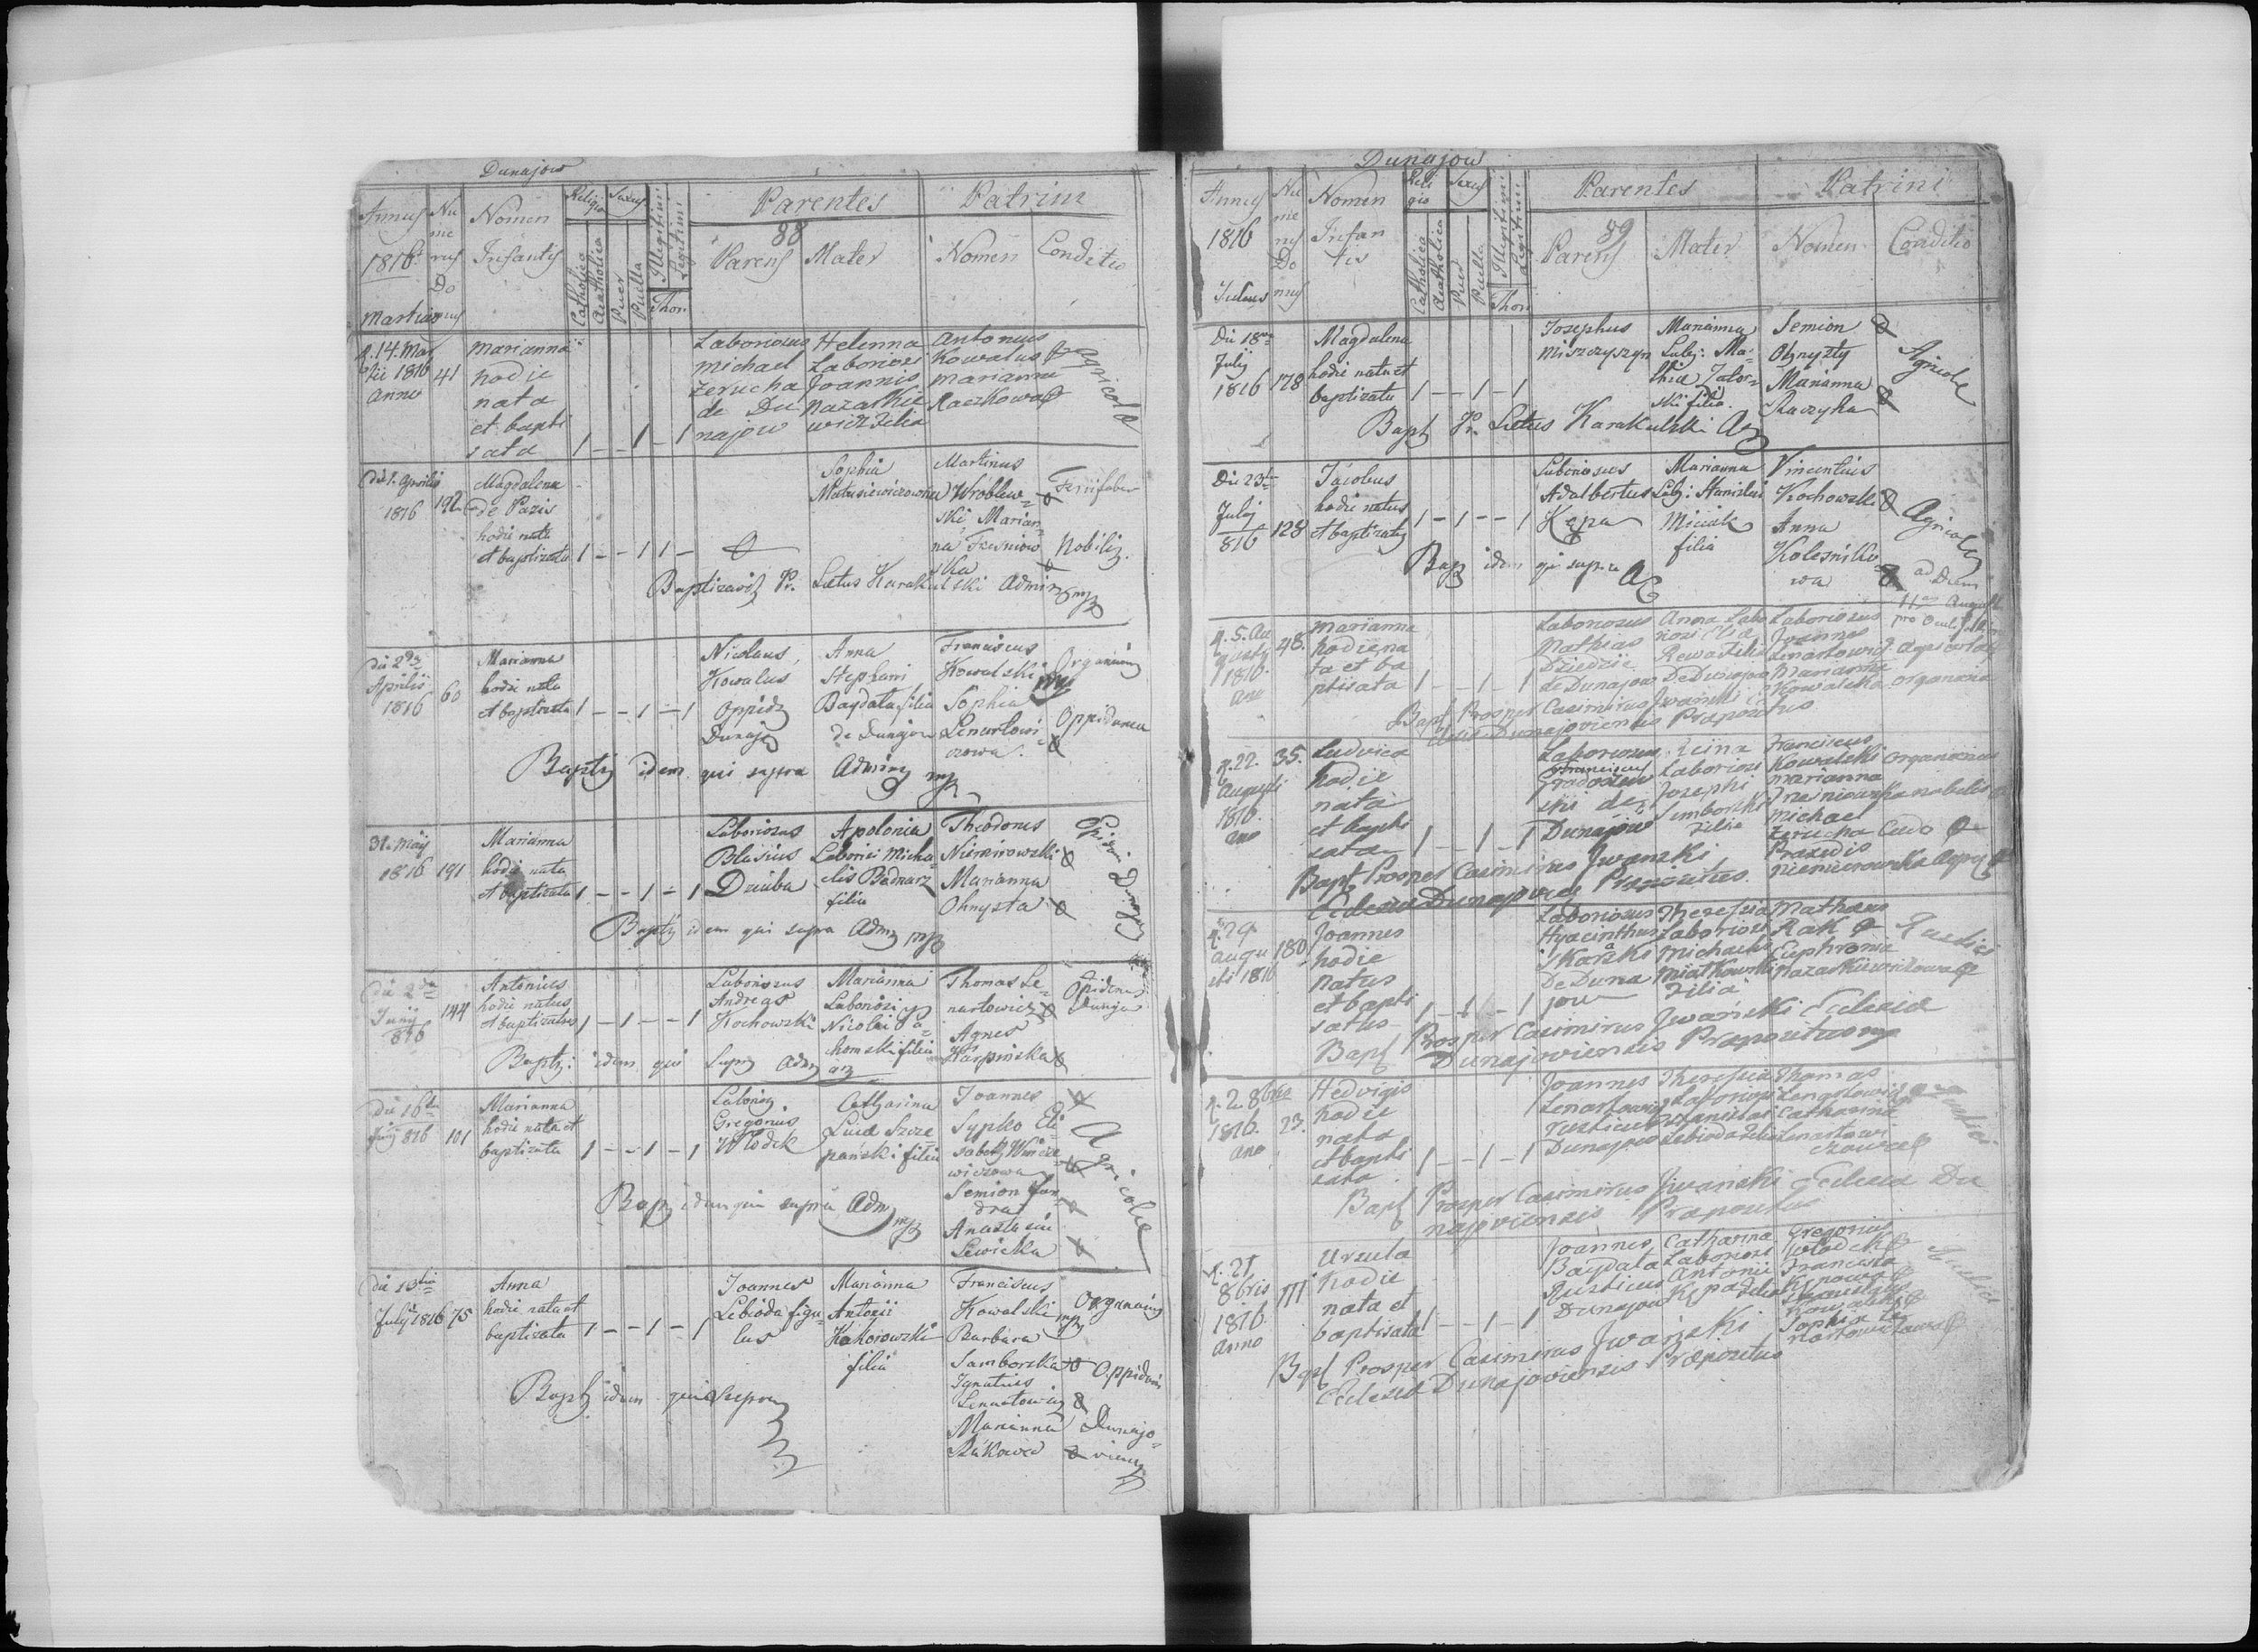 Dunajow
Annus 1816 Martius
Numerus Domus
Nomen Infantis
Religio
Catholica
Acatholica
Sexus
Puer
Puella
Illegitimi
Legitimi
Thori
Parentes
88
Parens
Mater
Patrini
Nomen
Conditio
d. 14. Mar
tii 1816
anno
41
Marianna
hodie
nata
et bapti
sata
1 - - 1 - 1
Laboriosus
Michael
Zerucha
de Du
najow
Helenna
Laboriosi
Joannis
Nazarkie
wicz Filia
Antonius
Kowalus
Marianna
Raczkowa
Agricolæ
Die 1. Aprilis
1816
192
Magdalena
de Pazis
hodie nata
et baptizata
1 - - 1 1 -
Sophia
Matusiewiczowna
Martinus
Wróblew-
ski Marian-
na Tresniow
ska
Ferrifaber
Nobilis
Baptizavit Pr. Lætus Karakulski Admin mp
Die 23
Aprilis
1816
60
Marianna
hodie nata
et baptizata
1 - - 1 - 1
Nicolaus
Kowalus
Oppid
Dunaj
Anna
Stephani
Baydala filia
de Dunajow
Franciscus
Kowalski
Sophia
Lenartowi-
czowa
Organarius
Oppidanea
Bapt idem qui supra Admin mp
31. Maji
1816
191
Marianna
hodie nata
et baptizata
1 - - 1 - 1
Laboriosus
Blasius
Dziuba
Apolonia
Laboriosi Micha-
elis Bednarz
filia
Theodorus
Niemirowski
Marianna
Ohnysta
Bapt idem qui supra Adm mp
Die 2da
Junij
816
144
Antonius
hodie natus
et baptizatus
1 - 1 - - 1
Laboriosus
Andreas
Kochowski
Marianna
Laboriosi
Nicolai
filia
Thomas Le-
nartowicz
Agnes
Karpinska
Opidanus
Dunaj
Bapt: idem qui supra Adm
Die 16ta
Junij 816
101
Marianna
hodie nata et
baptizata
1 - - 1 - 1
Laborios
Gregorius
Wlodek
Catharina
Lucæ Szcze-
panski filia
Joannes
Sypko Eli-
sabeth
wiczowa
Semion
Anastasia
Lewicka
Agricolæ
Bapt idem qui supra Adm mp
Die 13tia
July 1816
75
Anna
hodie nata et
baptizata
1 - - 1 - 1
Joannes
Lebioda figu-
lus
Marianna
Antonii
filia
Franciscus
Kowalski
Barbara
Samborska
Ignatius
Lenartowicz
Marianna
Rakowa
Organarius mp
Oppidani
Dunajo-
vien
Bapt idem qui supra
Dunajow
Annus 1816 Julius
Numerus Domus
Nomen Infantis
Religio
Catholica
Acatholica
Sexus
Puer
Puella
Illegitimi
Legitimi
Thori
Parentes
89
Parens
Mater
Patrini
Nomen
Conditio
Die 18va
July
1816
178
Magdalena
hodie nata et
baptizata
1 - - 1 - 1
Josephus
Miszczyszyn
Marianna
Labj: Ma-
thiæ Zator-
ski filia
Semion
Ohnysty
Marianna
Agricolæ
Bapt Pr. Lætus Karakulski
Die 23tia
July
816
128
Jacobus
hodie natus
et baptizatus
1 - 1 - - 1
Laboriosus
Adalbertus
Kępa
Marianna
Labj: Stanislai
Misiak
filia
Vincentius
Kochowski
Anna
Kolesniko
wa
Agricolæ
Bapt idem qui supra
ad Diem
11 August
d. 5. Au
gusti
1816
ano
48.
Marianna
hodie na
ta et ba
ptisata
1 - - 1 - 1
Laboriosus
Mathias
Dziedzic
de Dunajow
Anna Labo
riosi
Filia
De Dunajow
Laboriosus
Joannes
Lenartowicz
Marianna
Kowalska
agricola
organaria
Bapt Prosper Casimirus Jwański
Eclesiæ Dunajoviensis Præpositus
d. 22.
Augusti
1816.
ano
35.
Ludvica
hodie
nata
et bapti
sata
1 - - 1 - 1
Laboriosus
Franciscus
ski de
Dunajow
Laboriosi
Josephi
Samborski
Filia
Franciscus
Kowalski
Marianna
Trzesniowska
Michael
Zerucha
Praxedis
Niemierowska
organarius
nobilis
Bapt Prosper Casimirus Jwanski
Eclesiæ Dunajovien Præpositus
d. 29
augu
sti 1816
180
Joannes
hodie
natus
et bapti
satus
1 - 1 - - 1
Laboriosus
Hyacinthus
De Duna
jow
Theresia
Laboriosi
Michaelis
Miatkowski
Filia
Matheus
Rak
Euphronia
Nazarkiewiczowa
Rustici
Bapt Prosper Casimirus Jwański Eclesiæ
Dunajoviensis Præpositus mp
d. 2. 8bris
1816.
ano
23.
Hedvigis
hodie
nata
et bapti
sata
1 - - 1 - 1
Joannes
Lenartowicz
rusticus
Dunajow
Theresia
Laboriosi
Stanislai
Lebioda Filia
Thomas
Lenartowicz
Catharina
Lenartowi
czowa
Rustici
Bapt Prosper Casimirus Jwański Eclesiæ Du
najoviensis Præpositus
d. 21
8bris
1816.
Anno
111
Ursula
hodie
nata et
baptisata
1 - - 1 - 1
Joannes
Baydala
Rusticus
Dunajow
Catharina
Laboriosi
Antonii
Kępa Filia
Gregorius
Wlodek
Francisca
Kępowa
Stanislaus
Kowalski
Sophia Le
nartowiczowa
Rustici
Bapt Prosper Casimirus Jwański
Eclesiæ Dunajoviensis Præpositus